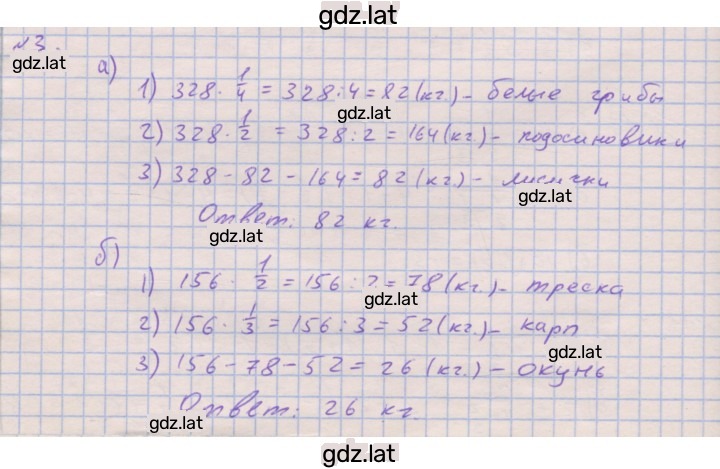 gdz.lat
№3.
gdz.lat
а)
1) 328 · 1/4 = 328 : 4 = 82 (кг.) - белые грибы
gdz.lat
2) 328 · 1/2 = 328 : 2 = 164 (кг) - подосиновики
3) 328 - 82 - 164 = 82 (кг.) - лисички
gdz.lat
Ответ: 82 кг.
gdz.lat
б)
1) 156 · 1/2 = 156 : 2 = 78 (кг.) - треска
gdz.lat
2) 156 · 1/3 = 156 : 3 = 52 (кг.) - карп
gdz.lat
3) 156 - 78 - 52 = 26 (кг.) - окунь
Ответ: 26 кг.
gdz.lat
gdz.lat
gdz.lat